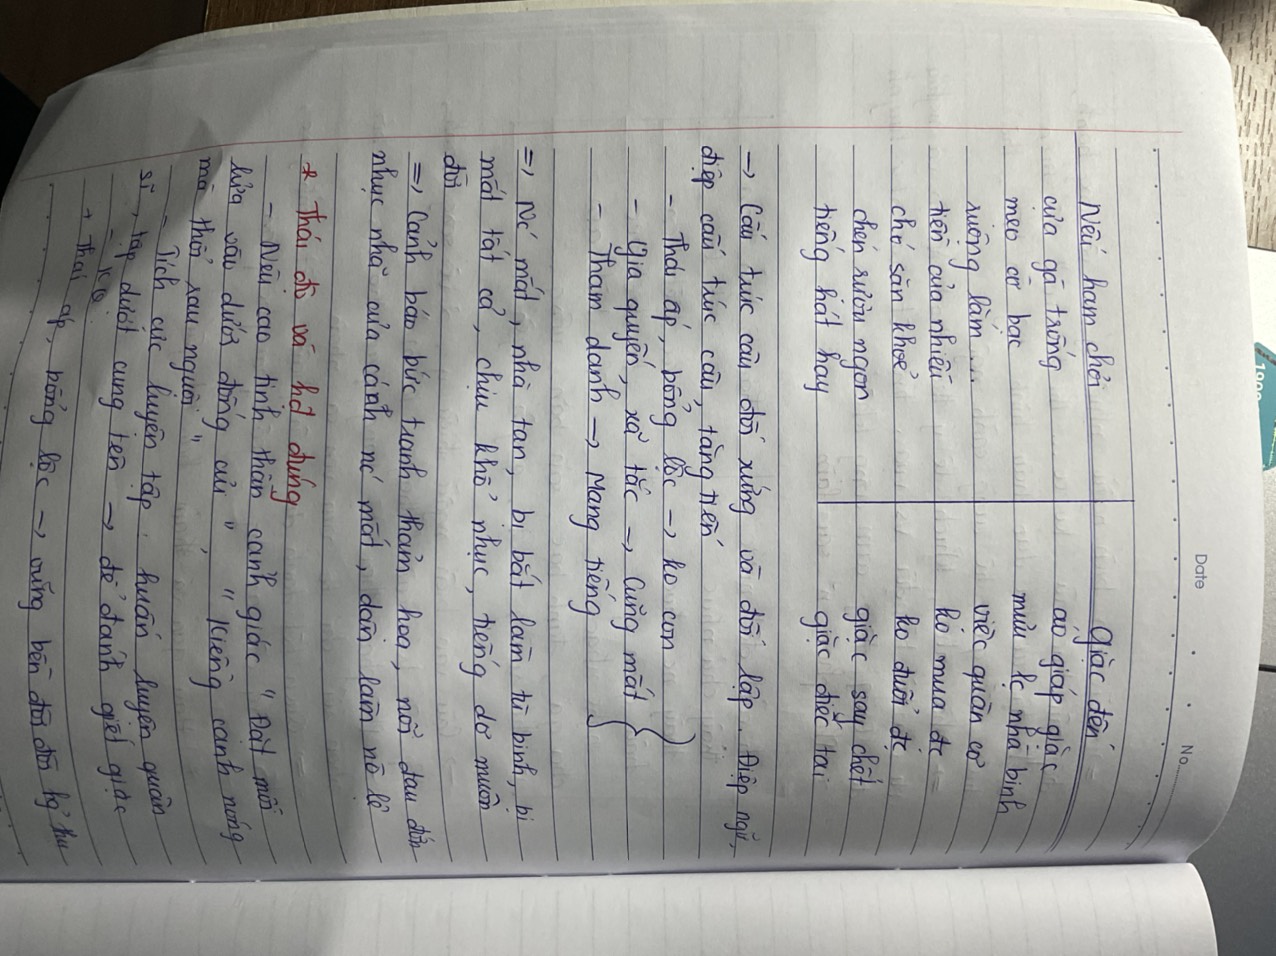 1900
Date . . No.
Nếu ham chơi Giặc đến
cựa gà trống áo giáp giặc
mẹo cờ bạc mưu lc nhà binh
ruộng lắm ... việc quân cơ
tiền của nhiều ko mua đc
chó săn khoẻ ko đuổi đc
chén rượu ngon giặc say chết
tiếng hát hay giặc điếc tai
→ Cấu trúc câu đối xứng và đối lập. Điệp ngữ,
điệp cấu trúc câu, tăng tiến
- Thái ấp, bổng lộc → ko còn
- Gia quyến, xã tắc → Cũng mất
- Tham danh → Mang tiếng
=> Nc mất, nhà tan, bị bắt làm tù binh, bị
mất tất cả, chịu khổ nhục, tiếng dơ muôn
đời
=> Cảnh báo bức tranh thảm hoạ, nỗi đau đớn
nhục nhã của cảnh nc mất, dân làm nô lệ
* Thái độ và hđ đúng
- Nêu cao tinh thần cảnh giác " Đặt mồi
lửa vào dưới đống củi ", " Kiềng canh nóng
mà thổi rau nguội "
- Tích cực luyện tập. huấn luyện quân
sĩ, tập dượt cung tên → để đánh giết giặc
- KQ
+ Thái ấp, bổng lộc → vững bền đời đời